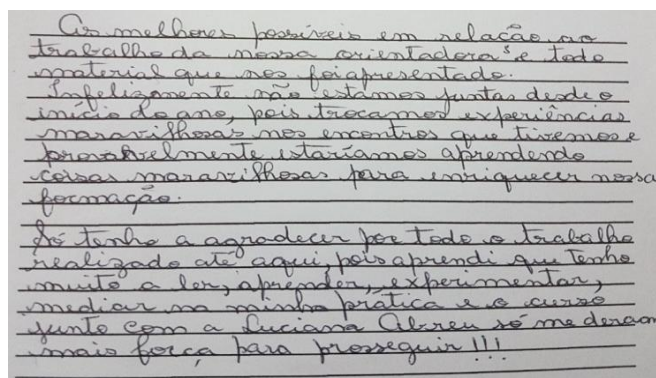 As melhores possíveis em relação ao
trabalho da nossa orientadora s e todo
material que nos foi apresentado.
Infelizmente não estamos juntas desde o
início do ano, pois trocamos experiências
maravilhosas nos encontros que tivemos e
provavelmente estaríamos aprendendo
coisas maravilhosas para enriquecer nossa
formação.
Só tenho a agradecer por todo o trabalho
realizado até aqui, pois aprendi que tenho
muito a ler, aprender, experimentar,
mediar na minha prática e o curso
junto com a Luciana Abreu só me deram
mais força para prosseguir!!!